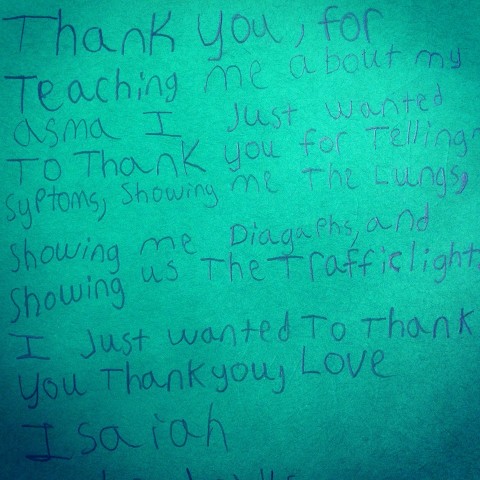 Thank you, for
Teaching me about my
asma I Just wanted
To Thank you for Telling
syptoms, Showing me The Lungs,
Showing me Diagaphs, and
Showing us The Trafficlight
I Just wanted To Thank
you Thankyou, Love
Isaiah